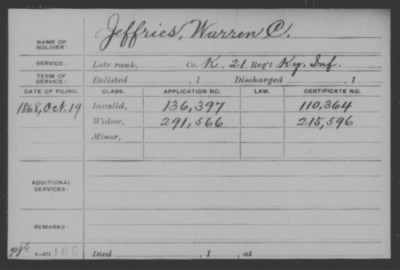 NAME OF SOLDIER: Jeffries, Warren C.
SERVICE: Late rank, Co. K, 21 Reg't Ky. Inf.
TERM OF SERVICE: Enlisted , 1 Discharged , 1
DATE OF FILING. CLASS. APPLICATION NO. LAW. CERTIFICATE NO.
1868, Oct. 19 Invalid, 136,397 110,364
Widow, 291,566 215,596
Minor,
ADDITIONAL SERVICES:
REMARKS:
Died , 1 , at